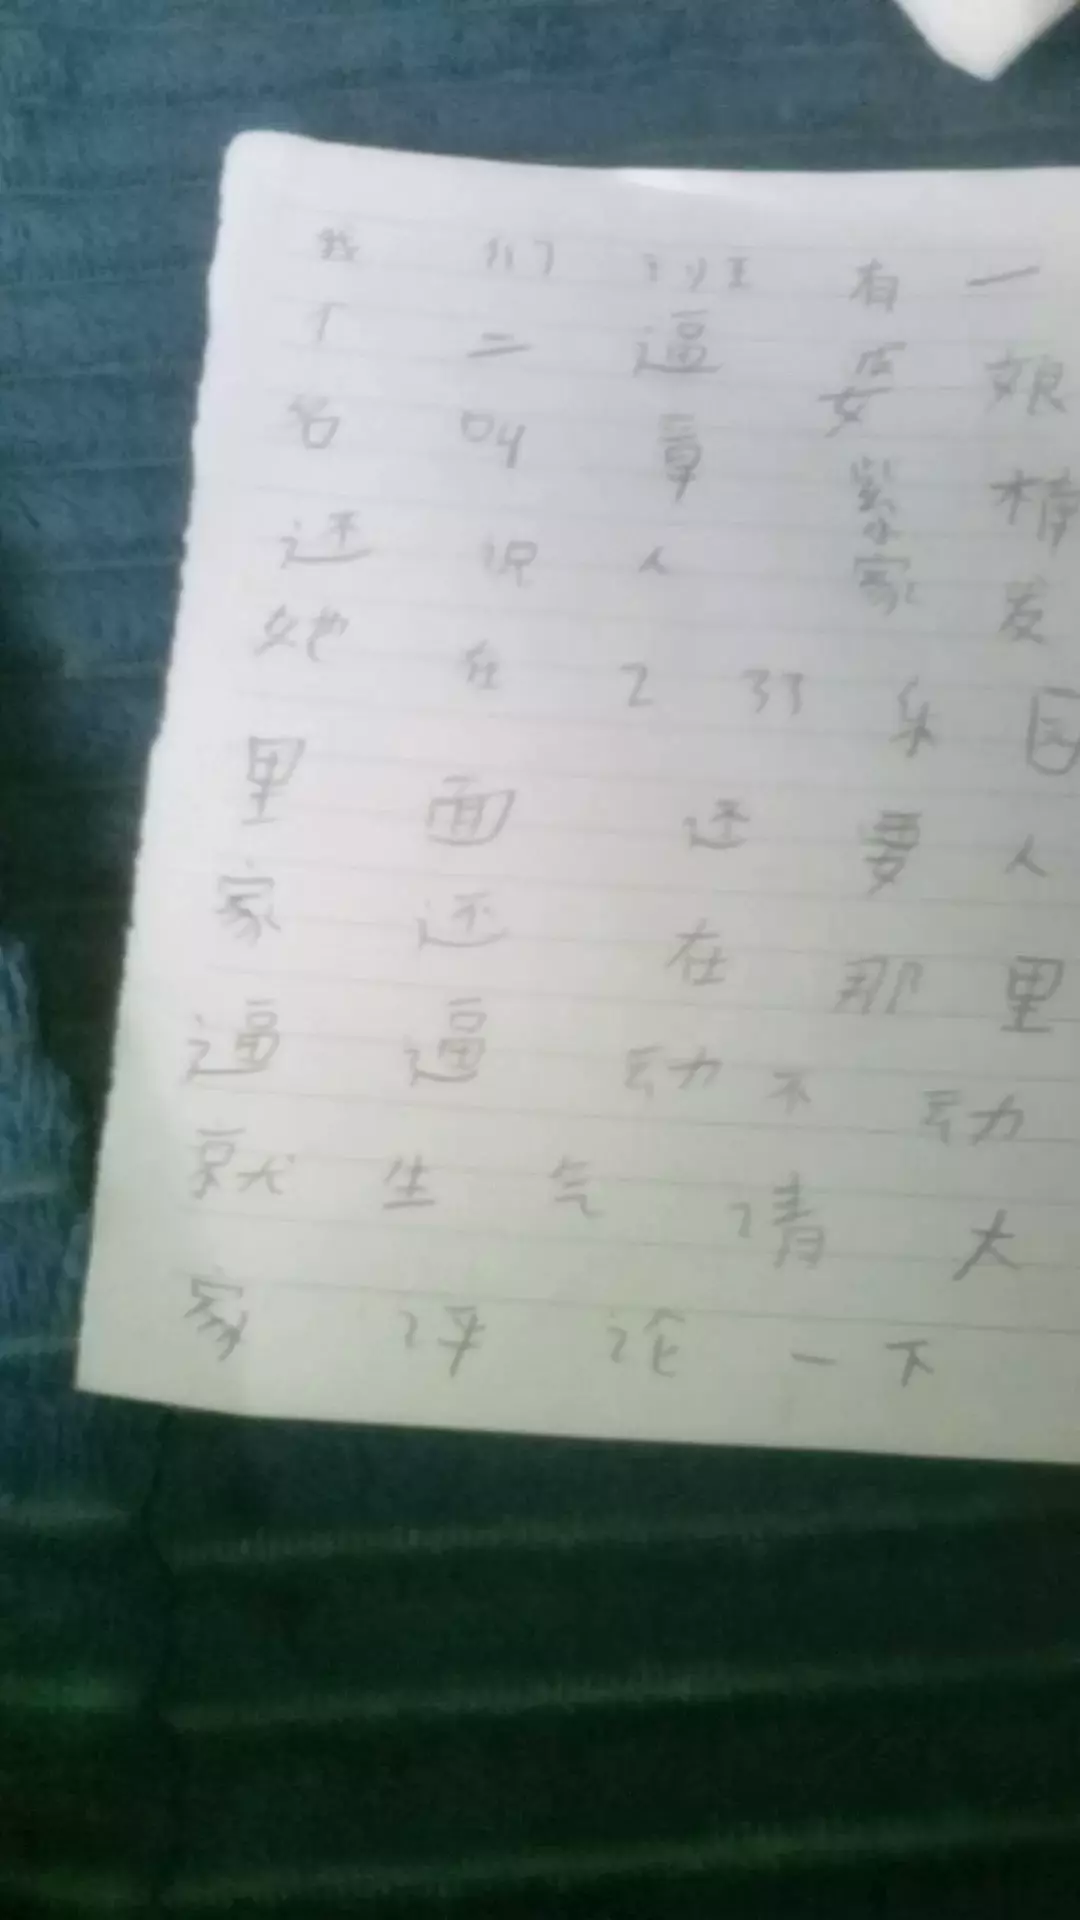 我们班有一
个二逼婆娘
名叫章紫梓
还说人家发
她在233乐园
里面还要人
家还在那里
逼逼动不动
就生气请大
家评论一下